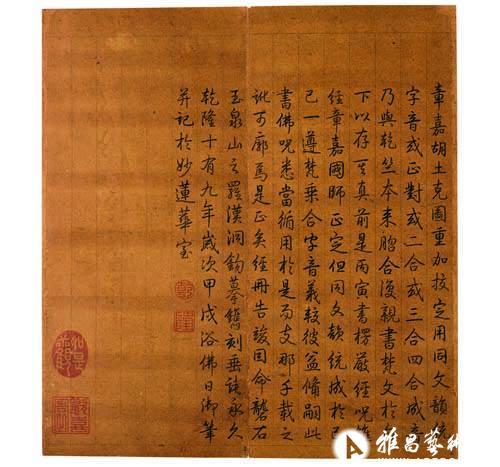 章嘉胡土克圖重加按定用同文韻統
字音或正對或二合或三合四合成音
乃與乾竺本来脗合復親書梵文於
下以存其真前是丙寅書楞嚴經咒
經章嘉國師正定但同文韻統成於己
巳一遵梵乗合字音義較彼益備嗣此
書佛咒悉當循用於是而支那千载之
訛可廓焉是正矣經冊告竣因命礱石
玉泉山之羅漢洞鉤摹鐫刻垂諸永久
乾隆十有九年歲次甲戌浴佛日御筆
并記於妙蓮華室
雅昌藝術